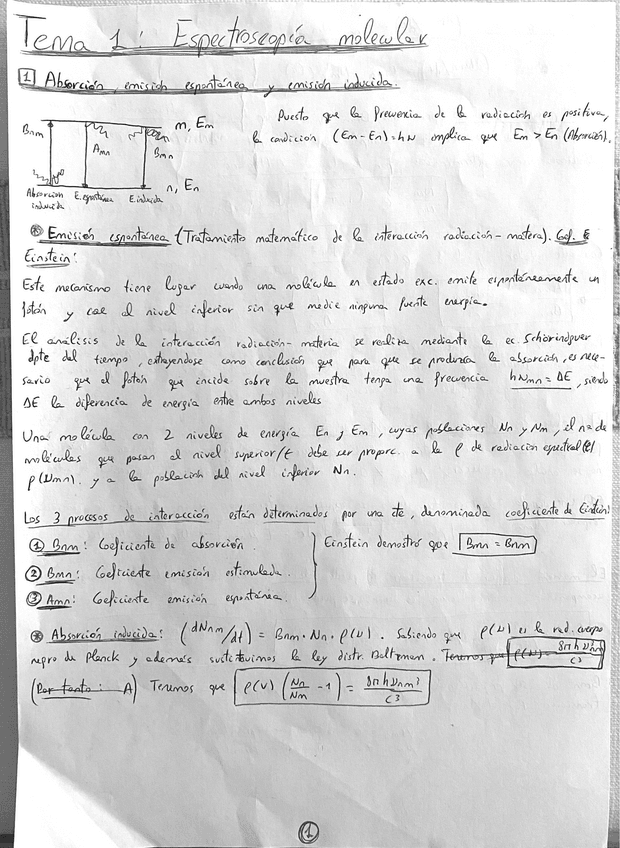 Tema 1: Espectroscopía molecular
1 Absorción, emisión espontánea y emisión inducida.
Puesto que la frecuencia de la radiación es positiva,
la condición (Em-En)=hν implica que Em > En (Absorción).
Bnm Amn Bmn m, Em
n, En
Absorción inducida E. espontánea E. inducida
⊛ Emisión espontánea (Tratamiento matemático de la interacción radiación-matera). Coef. E
Einstein:
Este mecanismo tiene lugar cuando una molécula en estado exc. emite espontáneamente un
fotón y cae al nivel inferior sin que medie ninguna fuente energía.
El análisis de la interacción radiación-materia se realiza mediante la ec. Schörindguer
dpte del tiempo, extrayendose como conclusión que para que se produzca la absorción, es nece-
sario que el fotón que incide sobre la muestra tenga una frecuencia hνmn = ΔE, siendo
ΔE la diferencia de energía entre ambos niveles
Una molécula con 2 niveles de energía En y Em, cuyas poblaciones Nn y Nm, el nº de
moléculas que pasan al nivel superior/t debe ser proporc. a la ρ de radiación espectral
ρ(νmn). y a la población del nivel inferior Nn.
Los 3 procesos de interacción están determinados por una cte, denominada coeficiente de Einstein:
① Bnm: Coeficiente de absorción.
② Bmn: Coeficiente emisión estimulada.
③ Amn: Coeficiente emisión espontánea.
Einstein demostró que Bmn = Bnm
⊛ Absorción inducida: (dNnm/dt) = Bnm · Nn · ρ(ν). Sabiendo que ρ(ν) es la rad. cuerpo
negro de Planck y además sustituimos la ley distr. Boltzman. Tenemos que ρ(ν) = 8πhν³nm/c3
(Por tanto: A) Tenemos que ρ(ν) (Nn/Nm - 1) = 8πhνnm³/c3
1